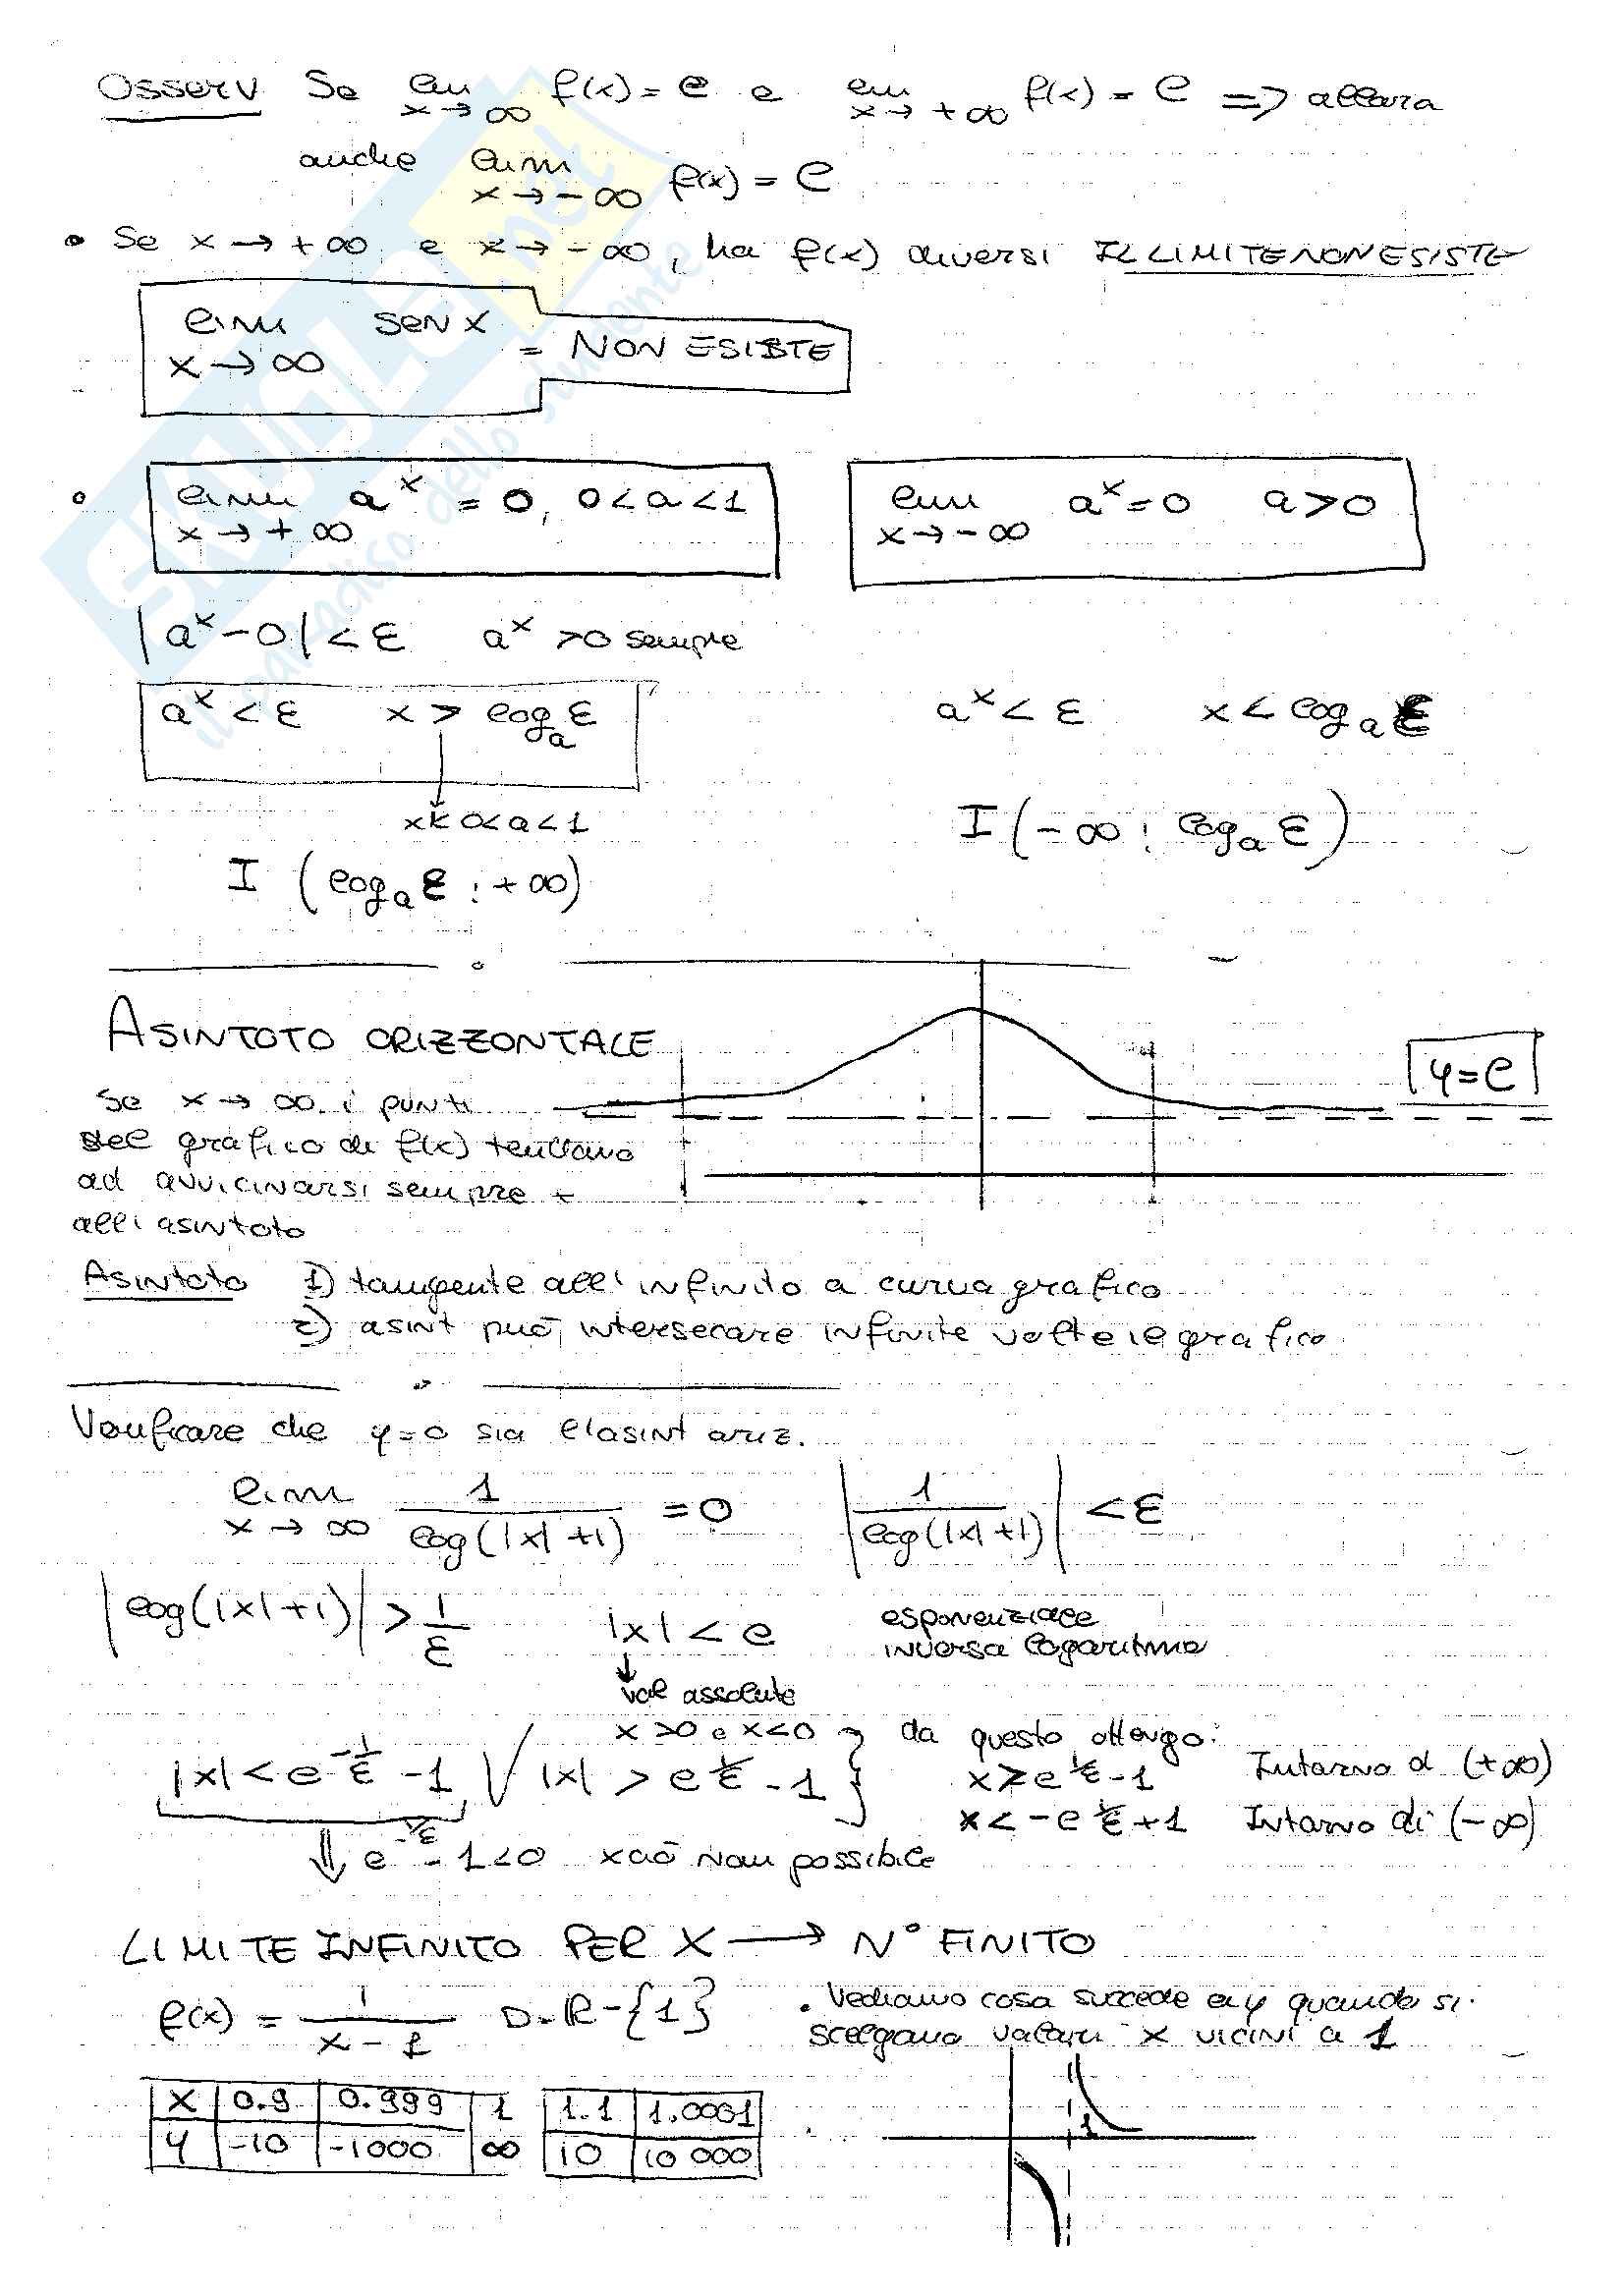 Osserv Se lim x→∞ f(x) = l e lim x→+∞ f(x) = l => allora
anche lim x→-∞ f(x) = l
• Se x→+∞ e x→-∞, ha f(x) diversi IL LIMITE NON ESISTE
lim x→∞ sen x = NON ESISTE
lim x→+∞ a^x = 0, 0<a<1
lim x→-∞ a^x = 0 a>0
|a^x - 0| < ε a^x > 0 sempre
a^x < ε x > log_a ε
a^x < ε x < log_a ε
xk 0<a<1
I (-∞ ; log_a ε)
I (log_a ε ; +∞)
ASINTOTO ORIZZONTALE
y=l
Se x→∞ i punti
del grafico di f(x) tendono
ad avvicinarsi sempre +
all'asintoto
Asintoto 1) tangente all'infinito a curva grafico
2) asint può intersecare infinite volte il grafico
Verificare che y=0 sia l'asint oriz.
lim x→∞ 1/log(|x|+1) = 0 |1/log(|x|+1)| < ε
|log(|x|+1)| > 1/ε |x| < e esponenziale
inversa logaritmo
val assoluto
x>0 e x<0 da questo ottengo:
|x| < e^(-1/ε) - 1 V |x| > e^(1/ε) - 1 } x > e^(1/ε) - 1 Intorno di (+∞)
x < -e^(1/ε) + 1 Intorno di (-∞)
e^(-1/ε) - 1 < 0 xciò non possibile
LIMITE INFINITO PER X → N° FINITO
f(x) = 1/(x-1) D=R-{1} • Vediamo cosa succede a y quando si
scelgono valori x vicini a 1
X 0.9 0.999 1 1.1 1.0001
Y -10 -1000 ∞ 10 10 000
1
SKUOLA.net
il paradiso dello studente